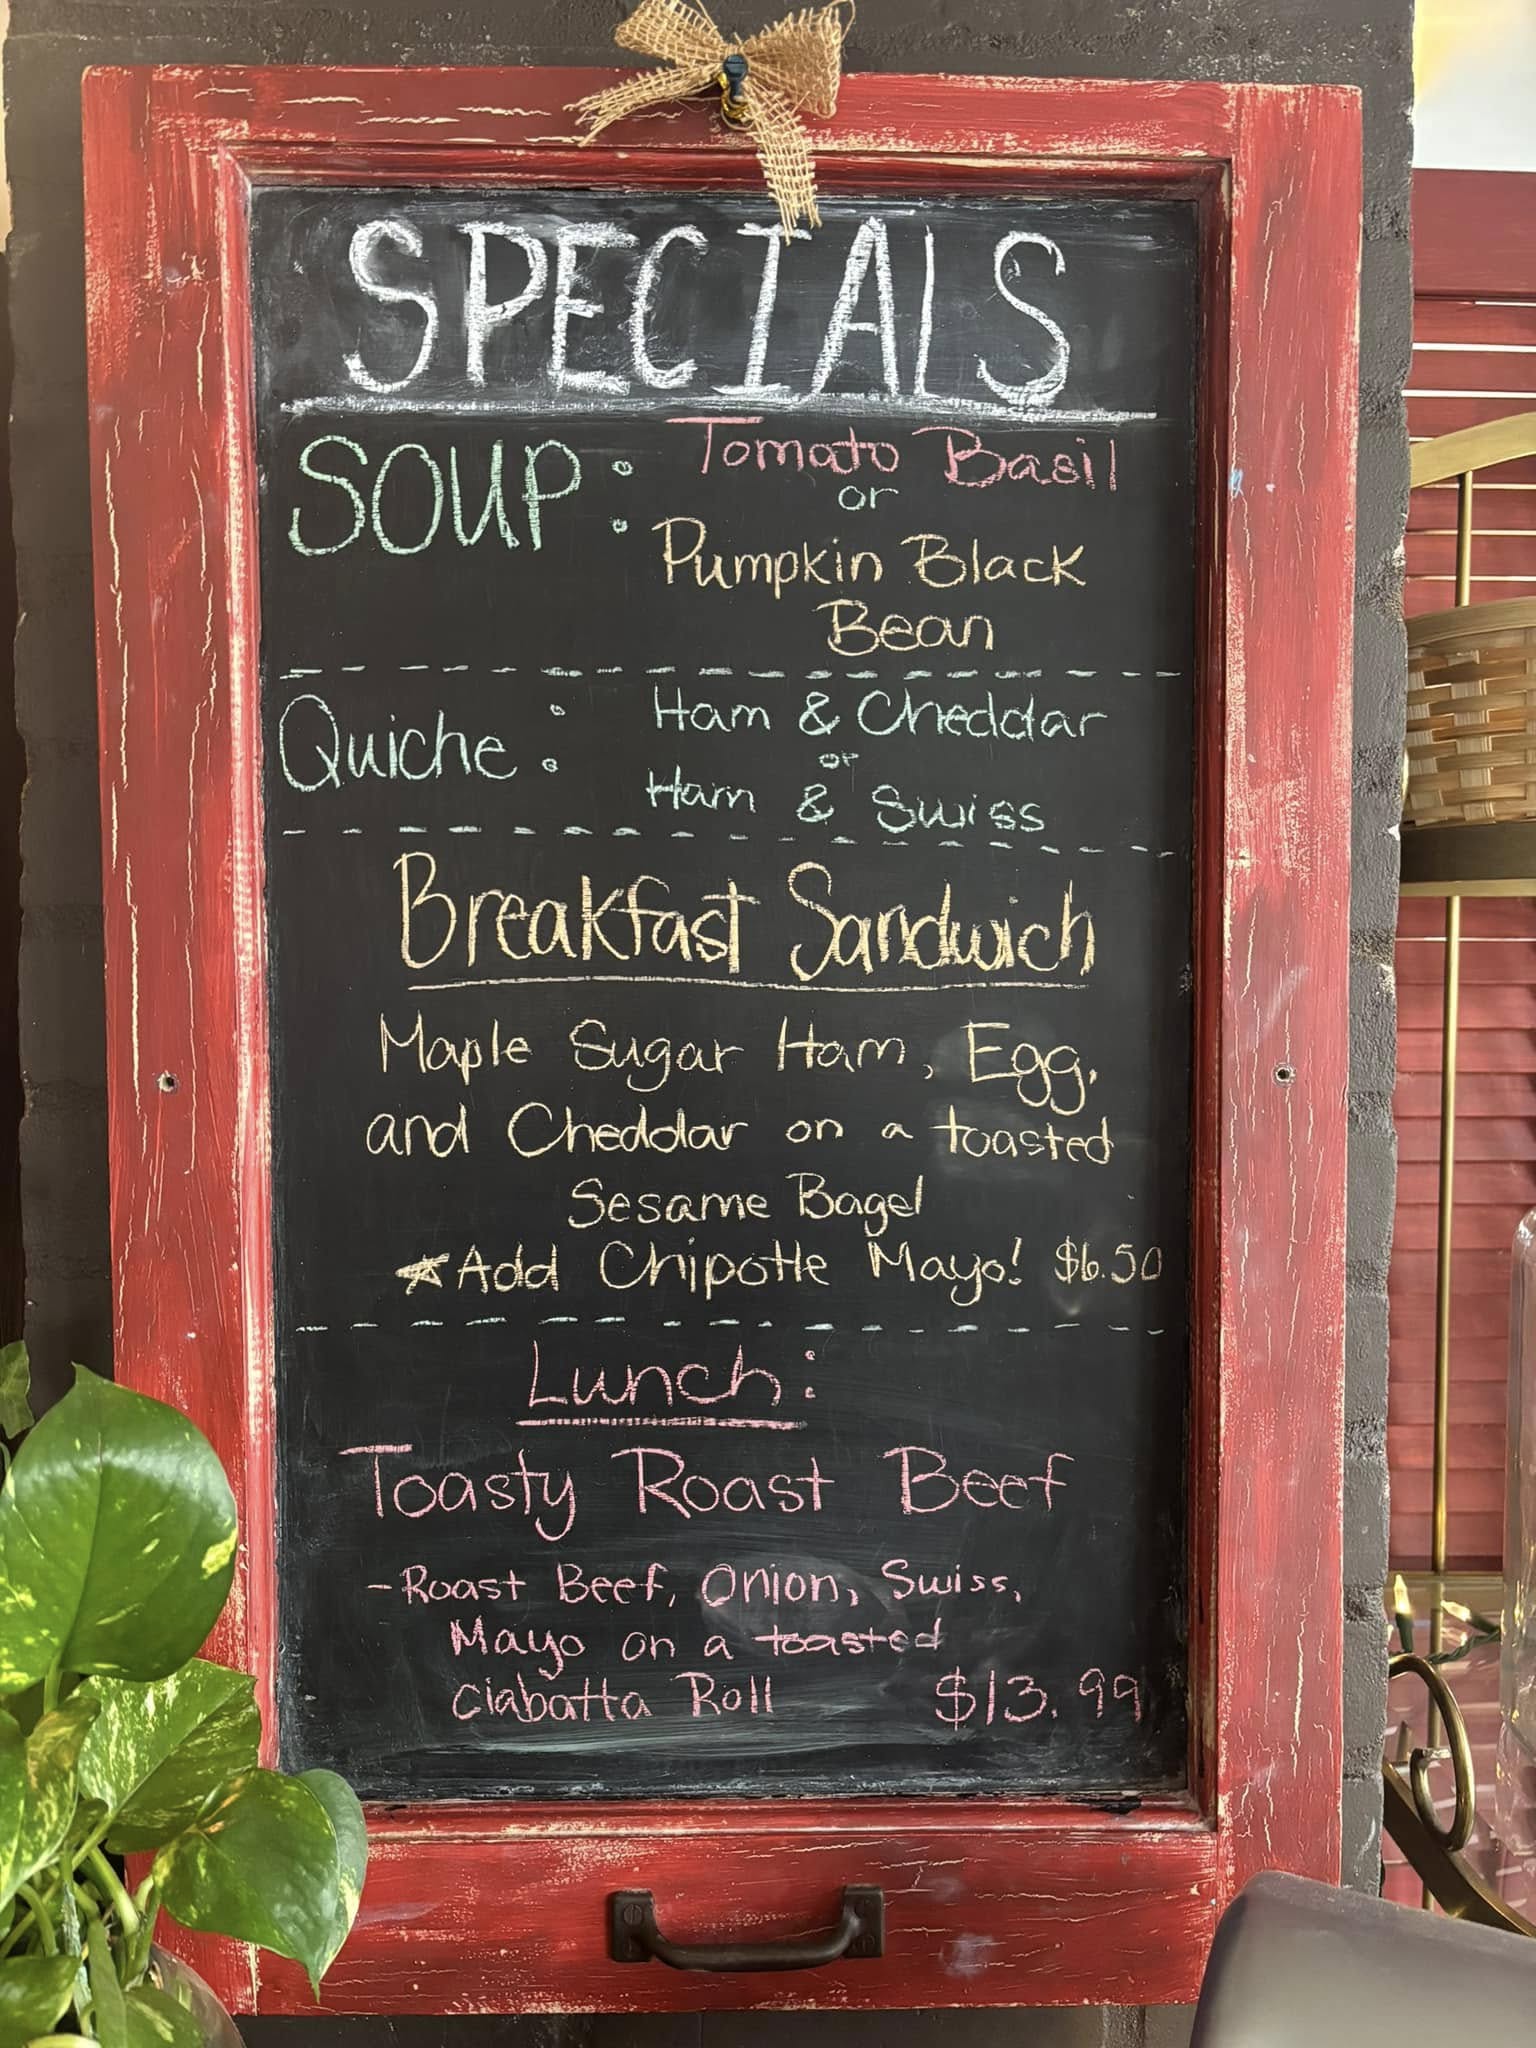 SPECIALS
SOUP: Tomato Basil
or
Pumpkin Black
Bean
Quiche: Ham & Cheddar
or
Ham & Swiss
Breakfast Sandwich
Maple Sugar Ham, Egg,
and Cheddar on a toasted
Sesame Bagel
★Add Chipotle Mayo! $6.50
Lunch:
Toasty Roast Beef
-Roast Beef, Onion, Swiss,
Mayo on a toasted
ciabatta Roll $13.99